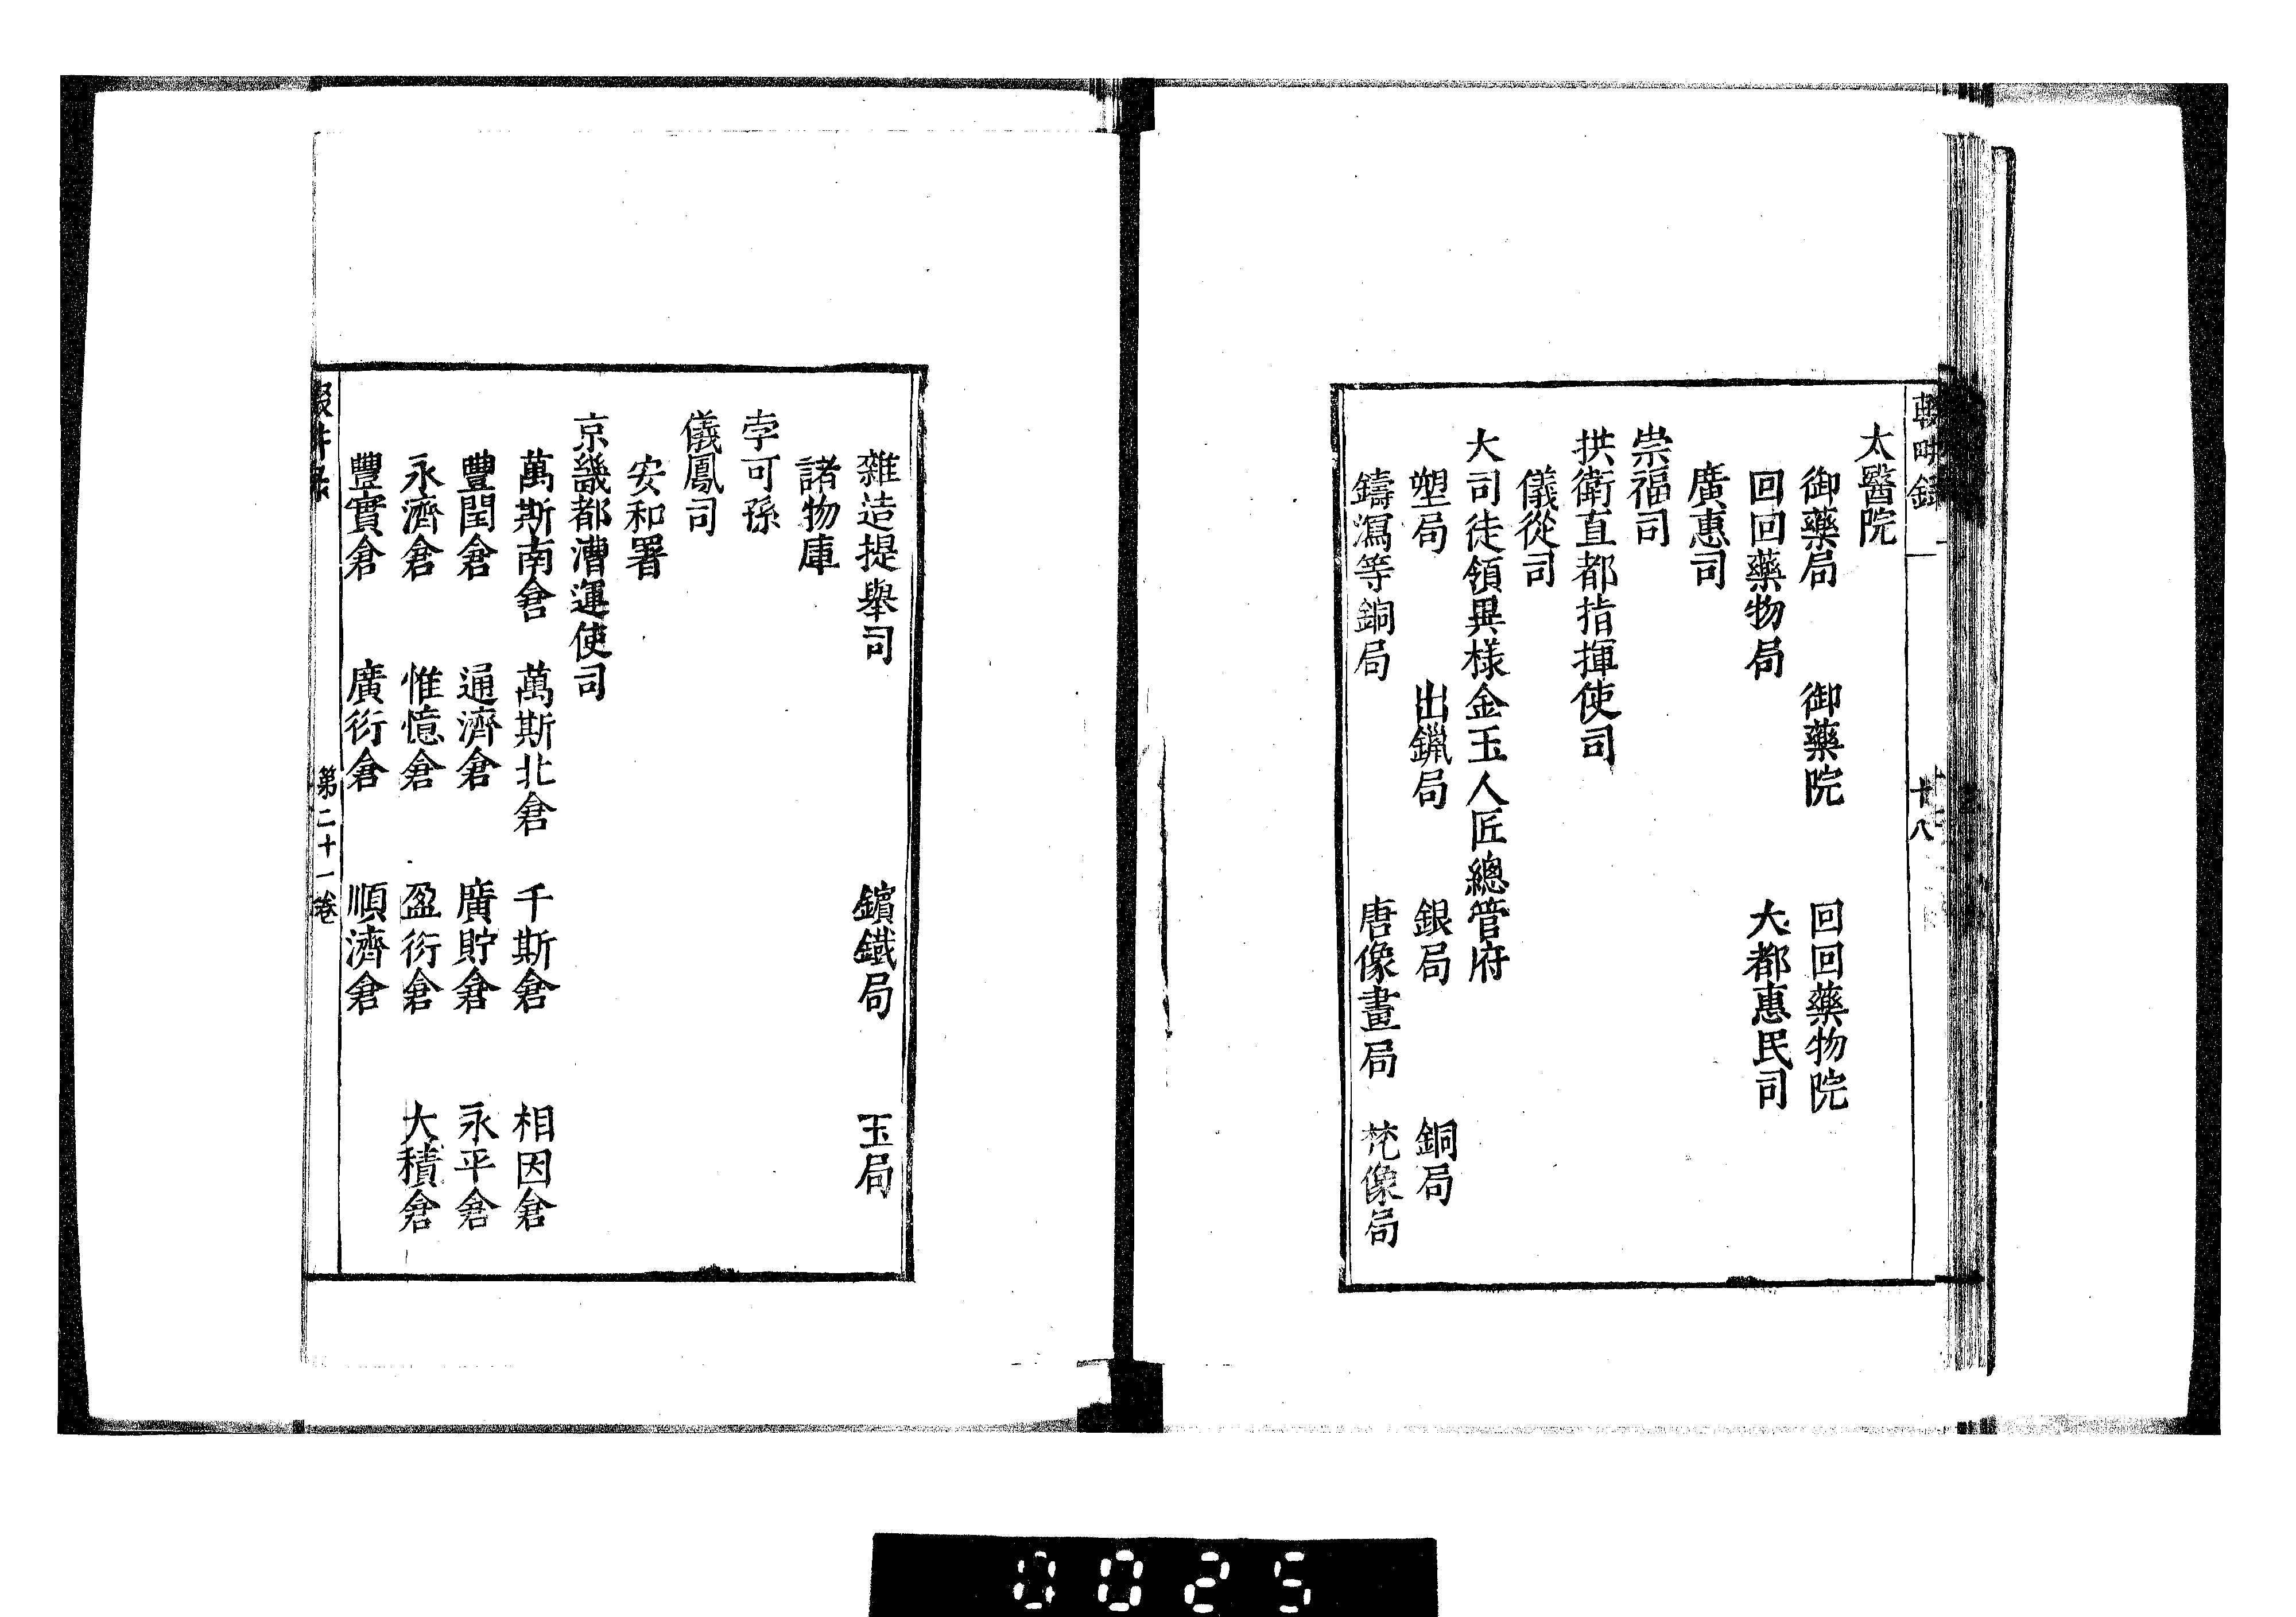 輟畊錄
十八
太醫院
御藥局 御藥院 回回藥物院
回回藥物局 大都惠民司
廣惠司
崇福司
拱衛直都指揮使司
儀從司
大司徒領異様金玉人匠總管府
塑局 出鑞局 銀局 銅局
鑄瀉等銅局 唐像畫局 梵像局
雜造提舉司 鑌鐵局 玉局
諸物庫
孛可孫
儀鳳司
安和署
京畿都漕運使司
萬斯南倉 萬斯北倉 千斯倉 相因倉
豐閏倉 通濟倉 廣貯倉 永平倉
永濟倉 惟憶倉 盈衍倉 大積倉
豐實倉 廣衍倉 順濟倉
第二十一卷
0025